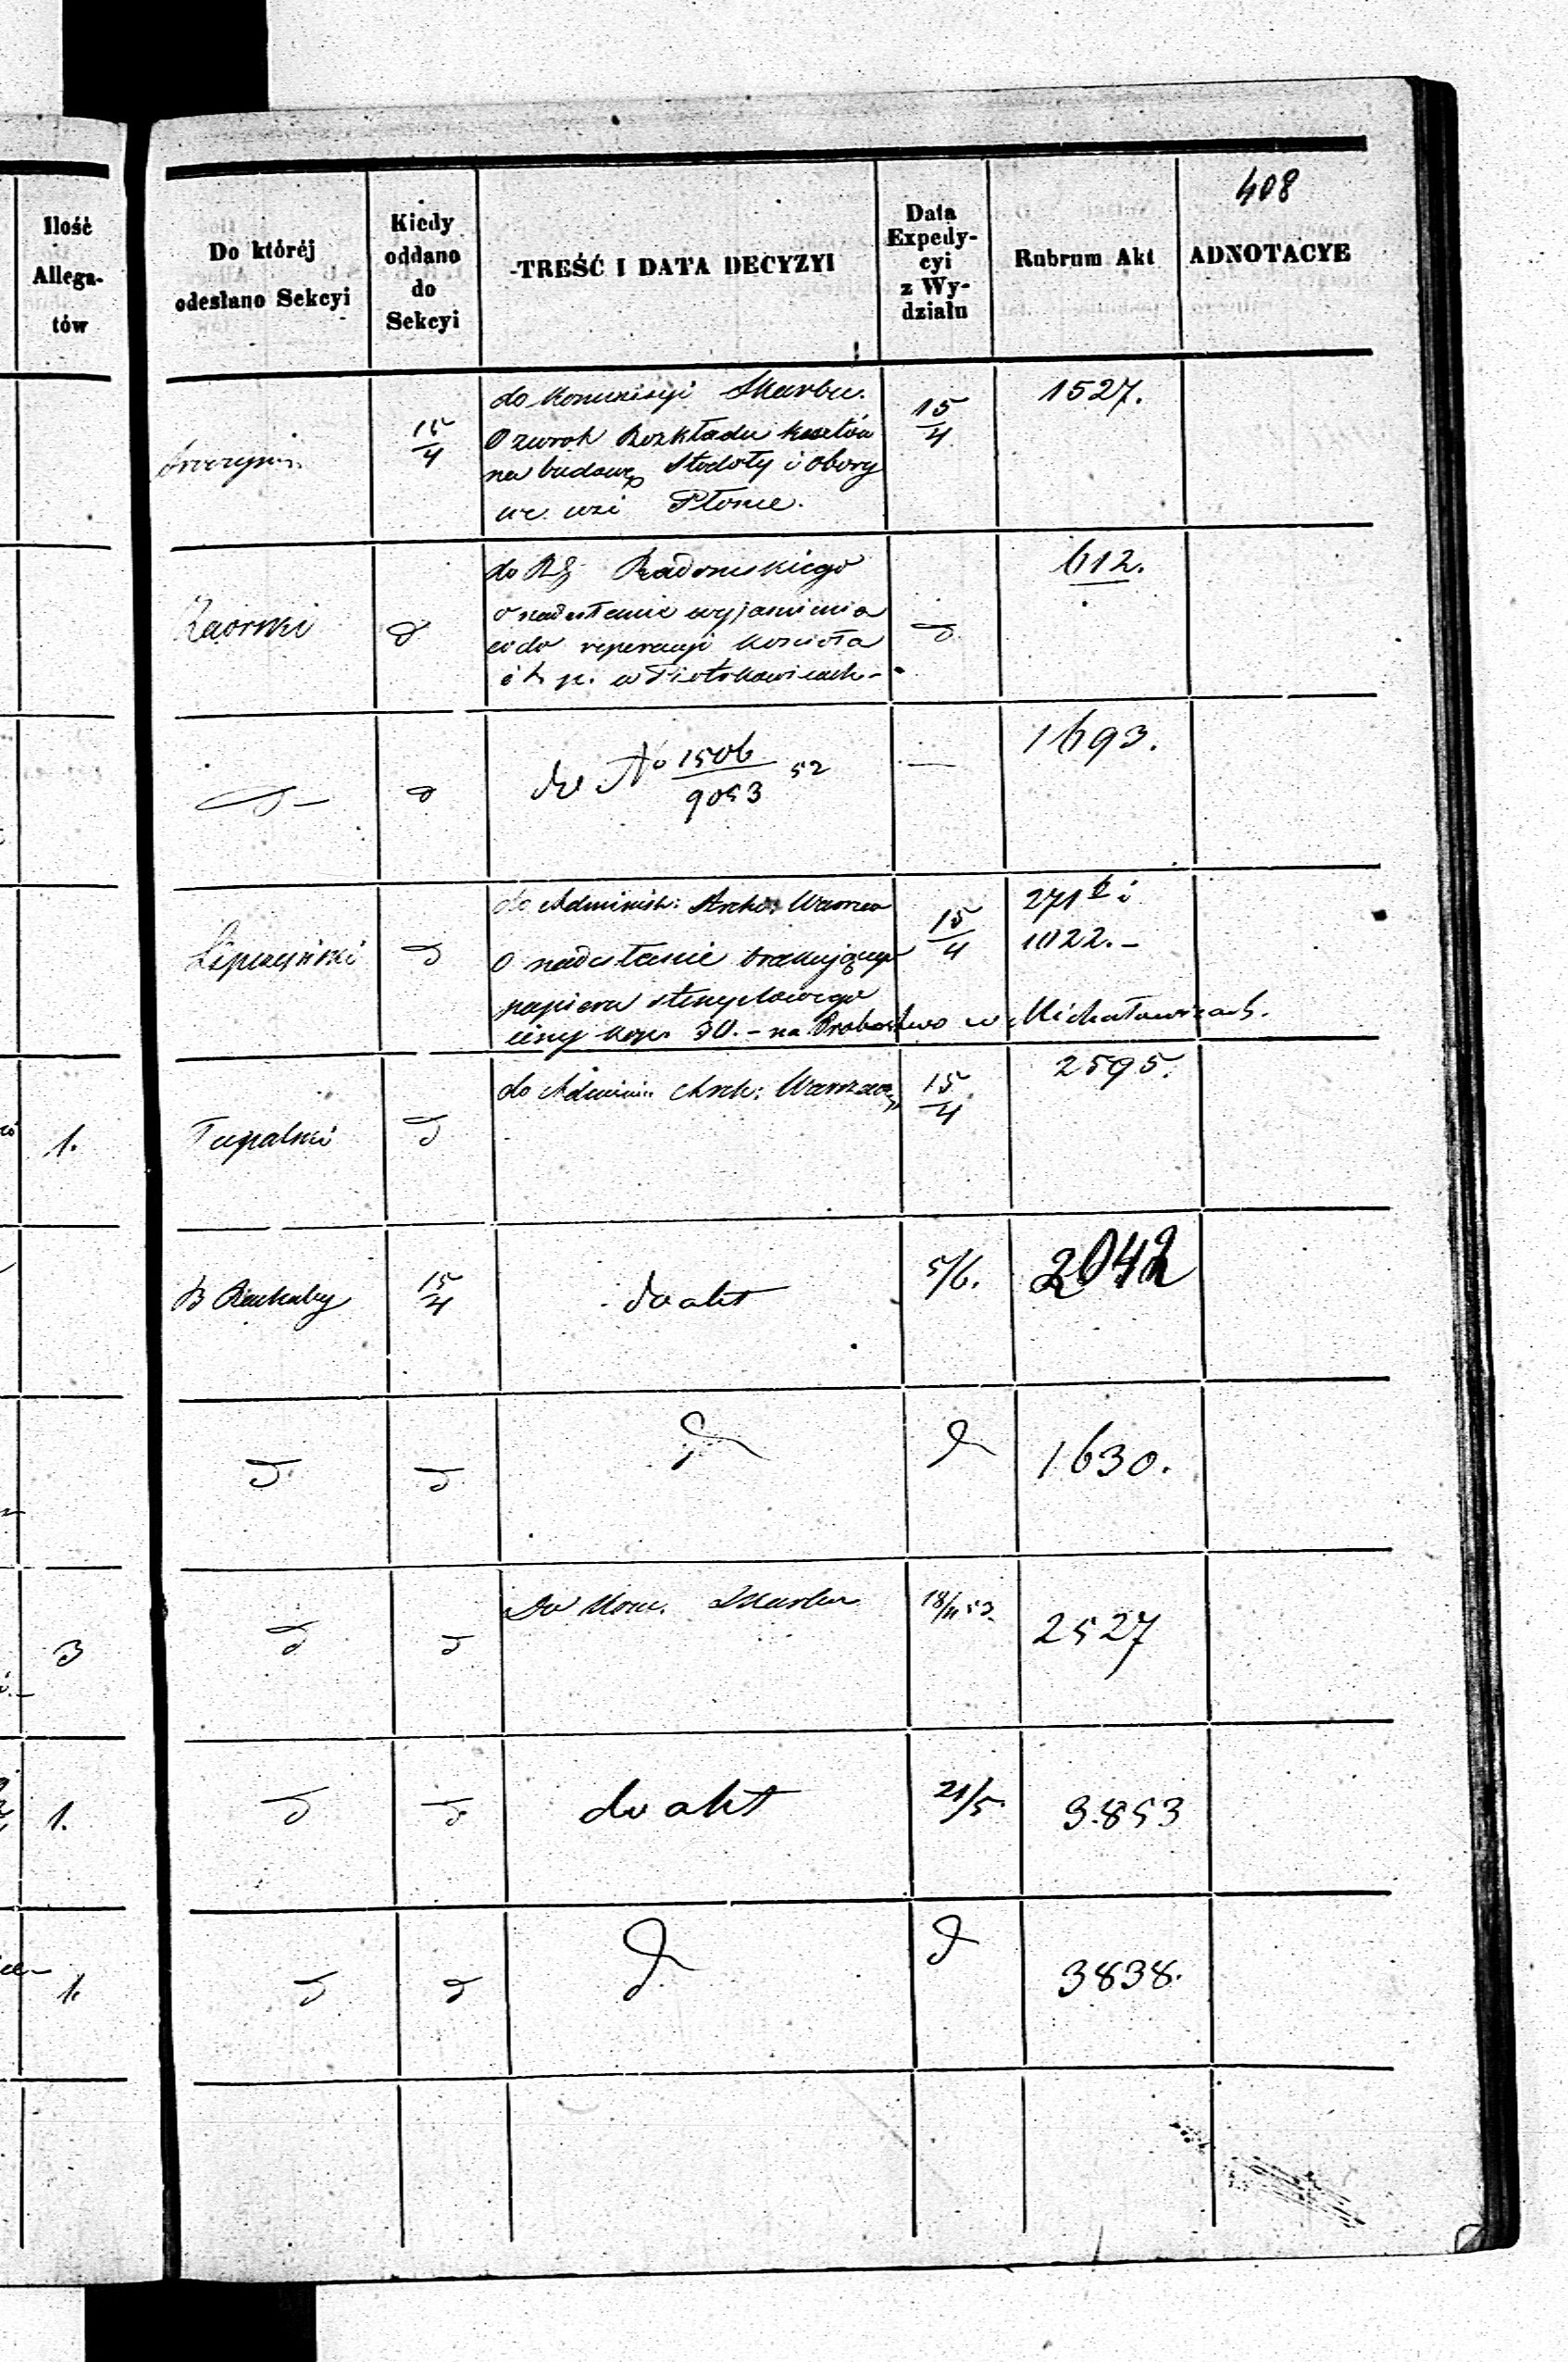 408
Ilość
Allega-
tów
Do któréj
odesłano Sekcyi
Kiedy
oddano
do
Sekcyi
TREŚĆ I DATA DECYZYI
Data
Expedy-
cyi
z Wy-
działu
Rubrum Akt
ADNOTACYE
15/4
do Kommisyi Skarbu.
O zwrot Rozkładu kosztów
na budowę Stodoły i obory
we wsi Płonce.
15/4
1527.
Zaorski
do
do RG Radomskiego
o nadesłanie wyjaśnienia
co do reperacyi kościoła
i t. p. w Piotrkowicach -
do
612.
do
do
do No 1506/9053 52
—
1693.
Lipczyński
do
do Administ: Archi: Warsza
O nadesłanie brakującego
papieru stemplowego
ceny kop. 30. - na Probostwo w Michałowicach.
15/4
271 b i
1022. -
1.
Tupalski
do
do Adminis: Arch: Warszaw
15/4
2595.
15/4
do akt
5/6.
2042
do
do
do
do
1630.
3
do
do
Do Kom. Skarbu
18/11 53.
2527
1.
do
do
do akt
21/5.
3853
1.
do
do
do
do
3838.